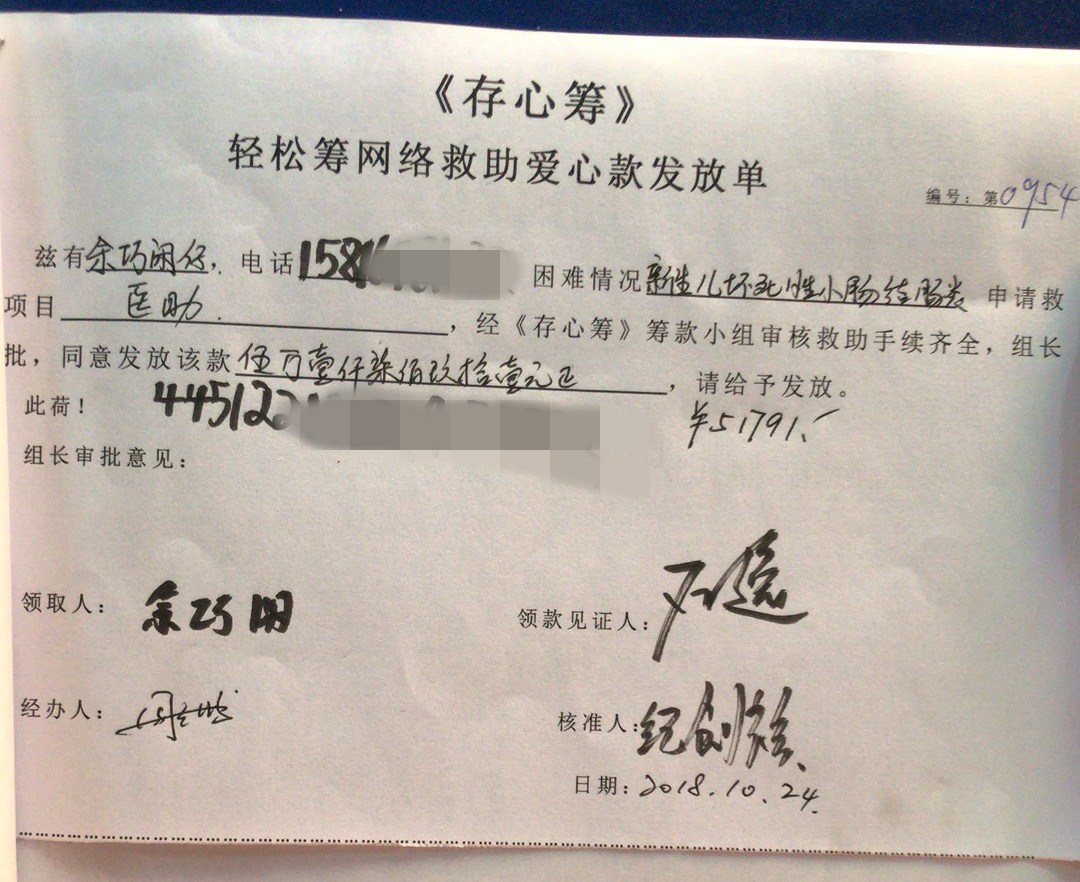 《存心筹》
轻松筹网络救助爱心款发放单
编号：第0954
兹有余巧闲仔，电话1581 困难情况新生儿坏死性小肠结肠炎 申请救
项目 医助 ，经《存心筹》筹款小组审核救助手续齐全，组长
批，同意发放该款伍万壹仟柒佰玖拾壹元正，请给予发放。
此荷！ 445122 ¥51791.
组长审批意见：
领取人：余巧闲 领款见证人：
经办人： 核准人：纪创
日期：2018.10.24.